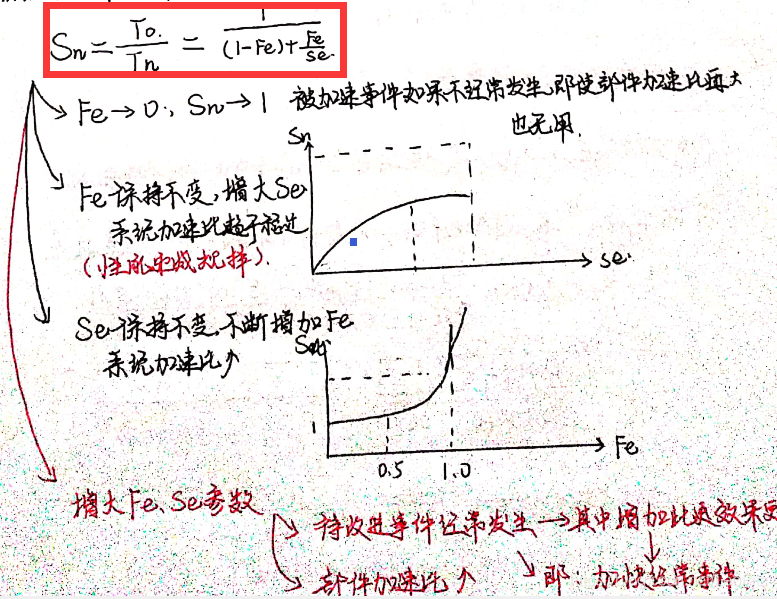 Sn = To / Tn = 1 / ((1-Fe)+Fe/Se)
Fe→0, Sn→1 被加速事件如果不经常发生,即使部件加速比再大
也无用.
Sn
Fe保持不变,增大Se
系统加速比趋于稳定
(性能
Se
Se保持不变,不断增加Fe
系统加速比↑
1
0.5 1.0 Fe
增大Fe、Se参数
待改进事件经常发生→其中增加比
部件加速比↑
即:加快经常事件